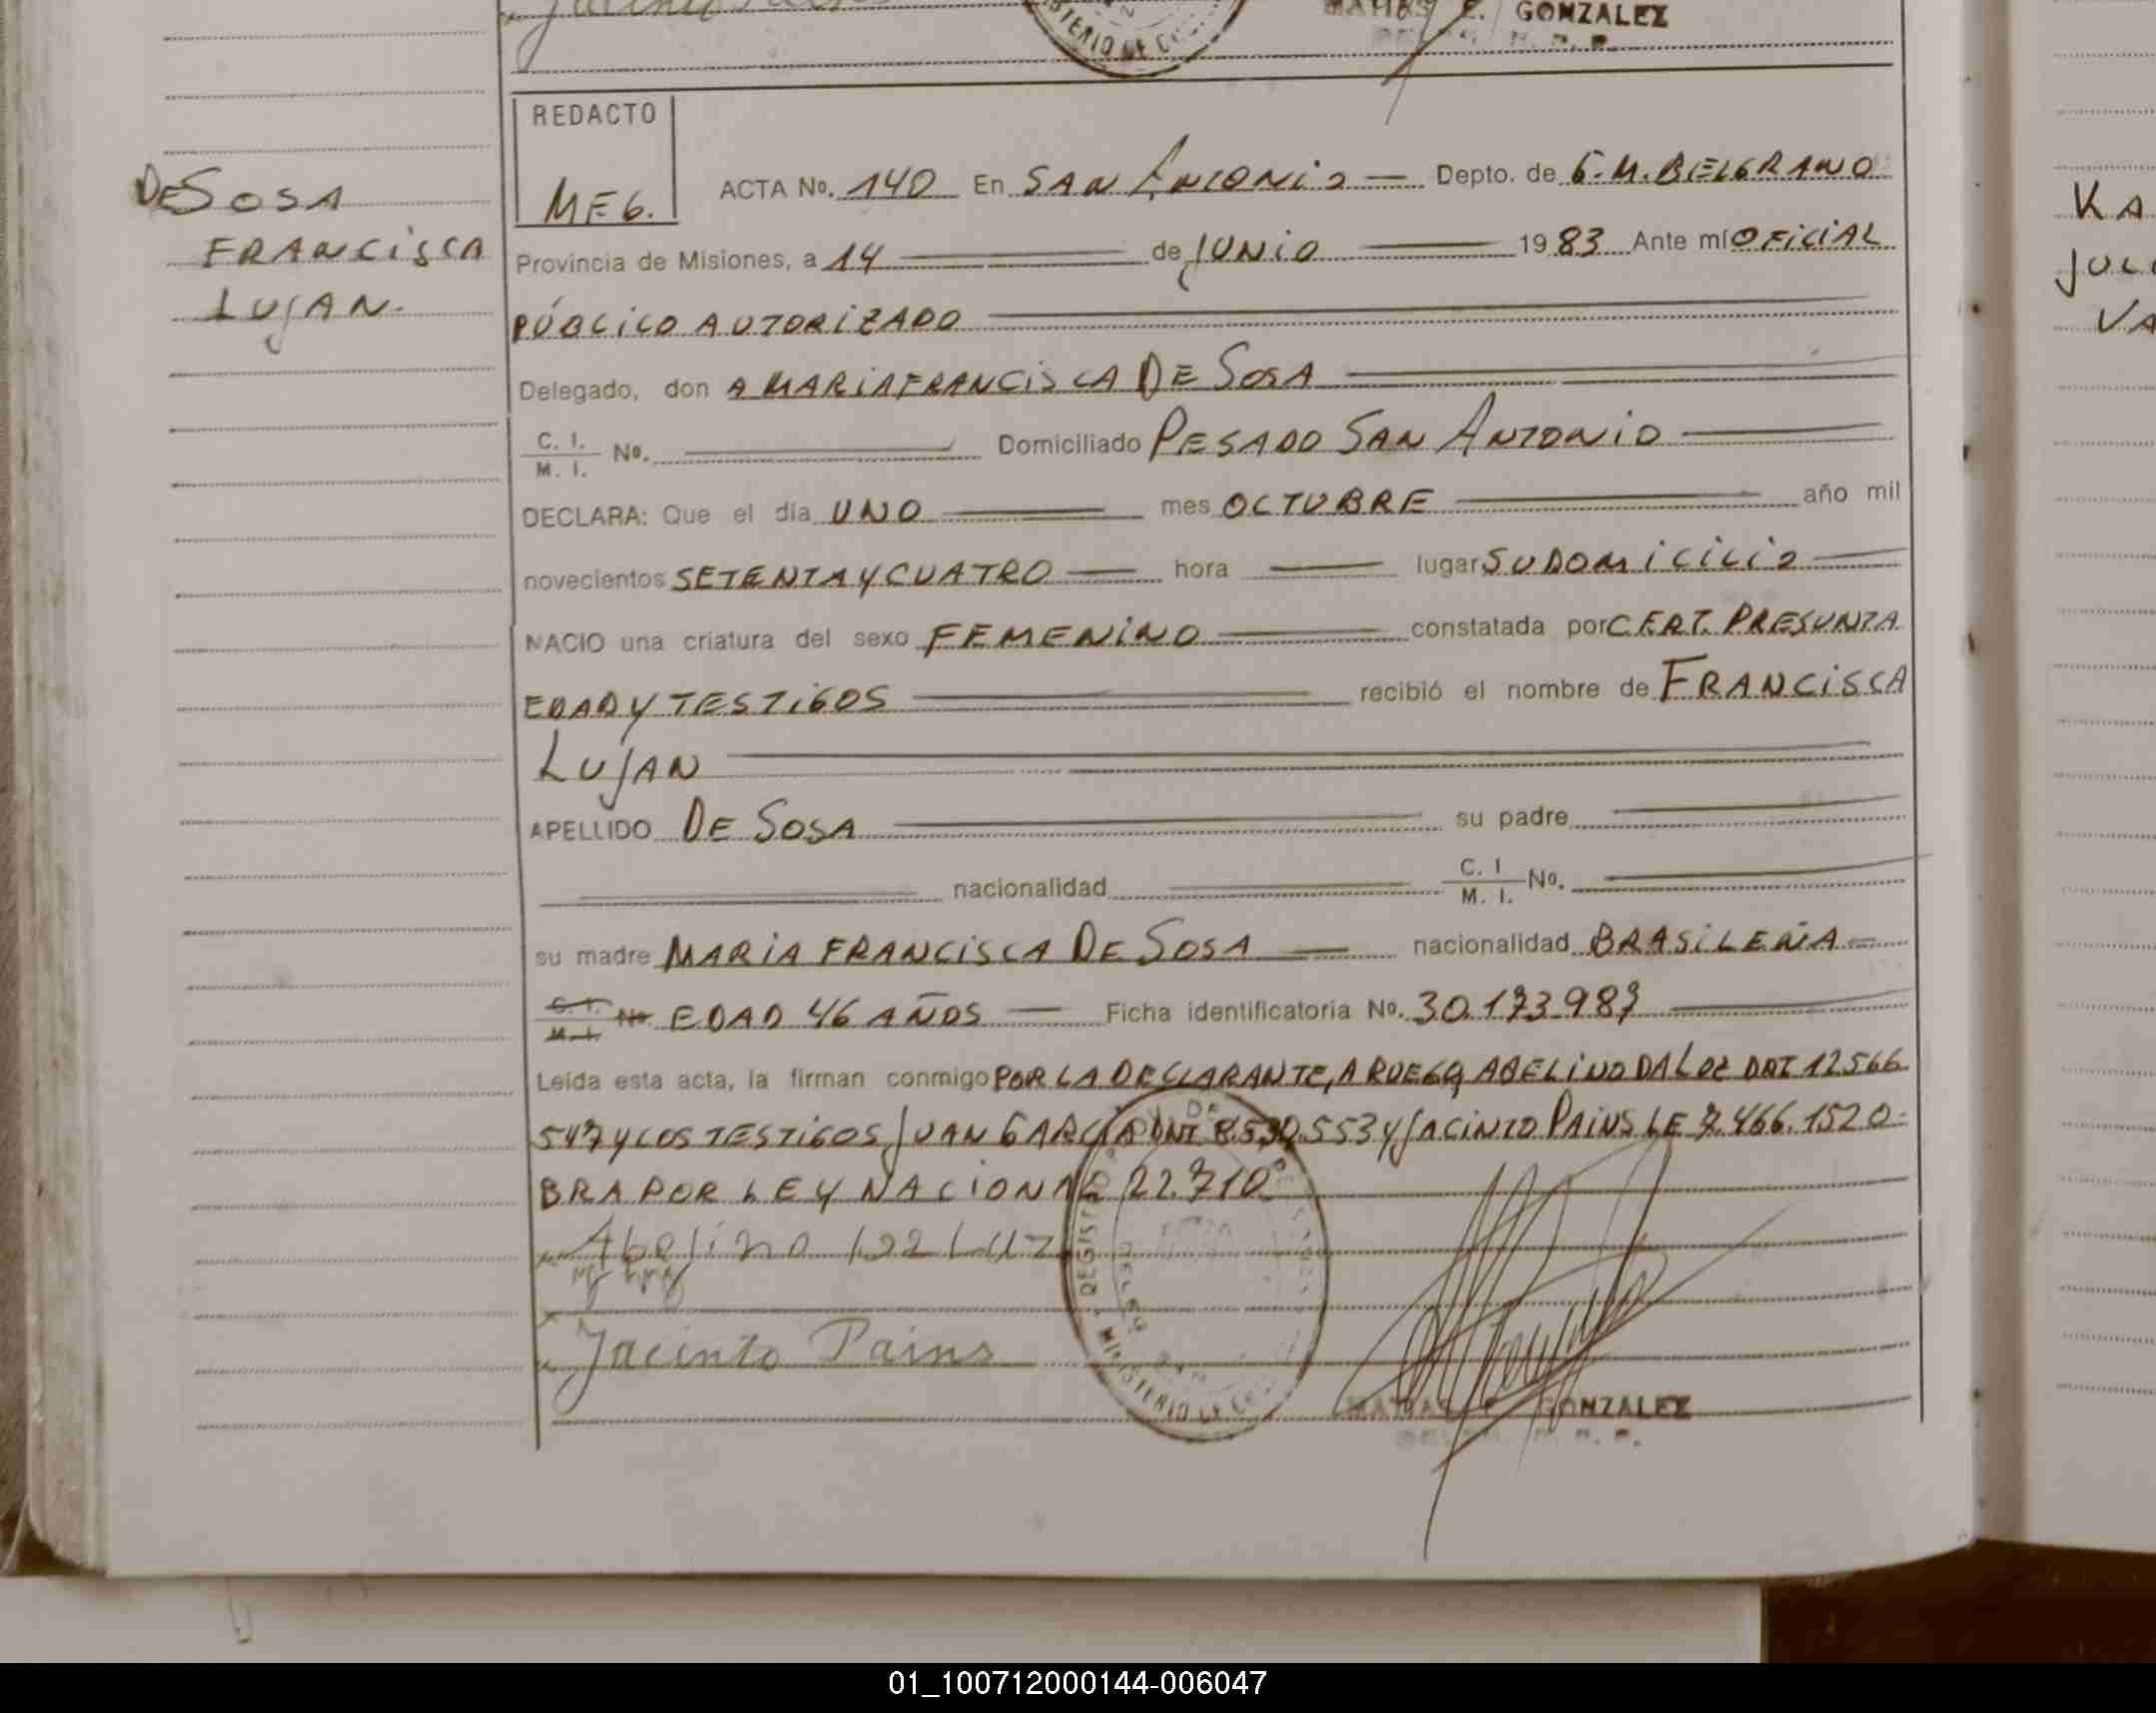 Jacinto Pains
MINISTERIO DE
MATIAS E. GONZALEZ
REDACTO
MEG.
DE SOSA
FRANCISCA
LUJAN.
ACTA No. 140 En SAN ANTONIO Depto. de G.M. BELGRANO
Provincia de Misiones, a 14 de JUNIO 1983 Ante mí OFICIAL
PÚBLICO AUTORIZADO
Delegado, don A MARIA FRANCISCA DE SOSA
C. I. / M. I. No. Domiciliado PESADO SAN ANTONIO
DECLARA: Que el día UNO mes OCTUBRE año mil
novecientos SETENTA Y CUATRO hora lugar SU DOMICILIO
NACIO una criatura del sexo FEMENINO constatada por CERT. PRESUNTA
EDAD Y TESTIGOS recibió el nombre de FRANCISCA
LUJAN
APELLIDO DE SOSA su padre
nacionalidad C. I / M. I. No.
su madre MARIA FRANCISCA DE SOSA nacionalidad BRASILEÑA
C. I. / M. I. No. EDAD 46 AÑOS Ficha identificatoria No. 30.173.987
Leída esta acta, la firman conmigo POR LA DECLARANTE, A RUEGO ABELINO DALUZ DNI 12566
547 Y LOS TESTIGOS JUAN GARCIA DNI 8.530.553 Y JACINTO PAINS LE 7.466.152 O
BRA POR LEY NACIONAL 22.710
Abelino da Luz
Jacinto Pains
REGISTRO
MINISTERIO DE
MATIAS E. GONZALEZ
KA
JUL
VA
01_100712000144-006047